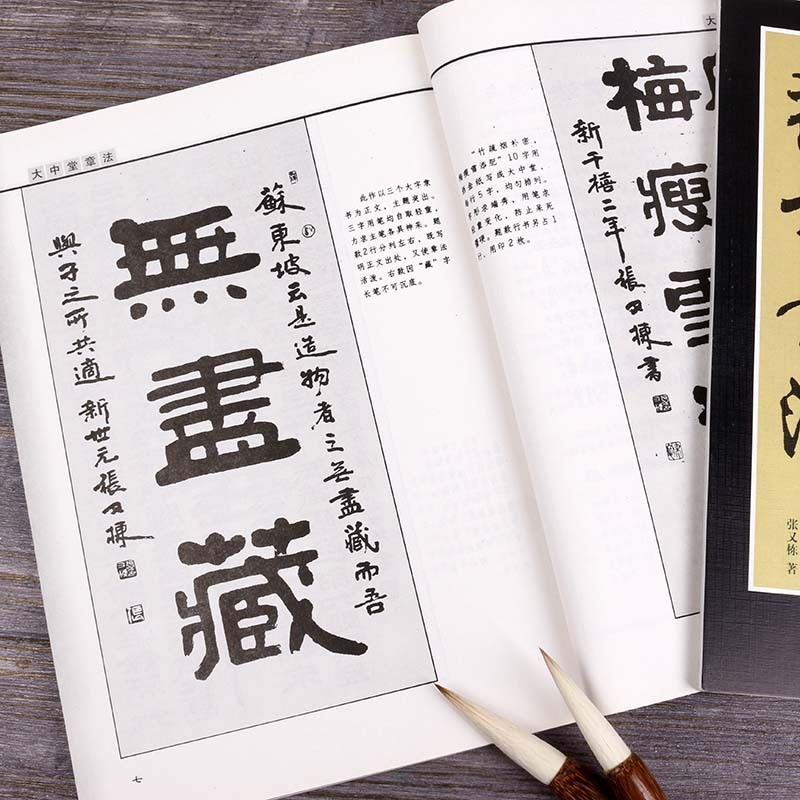 大中堂章法
無
盡
藏
蘇東坡云是造物者之无盡藏而吾
與子之所共適 新世元張又棟
此作以三个大字隶
书为正文，主题突出。
三字用笔均自取轻重，
力求主笔各具神采。题
款2行分列左右，既写
明正文出处，又使章法
活泼。右款因“藏”字
长笔不可沉底。
七
“竹疏烟补密，
瘦雪添肥”10字用
金纸写成大中堂，
行5字，均匀排列。
形求矮秀，用笔求
重变化，防止呆死
硬。题款行书另占1
行，用印2枚。
梅
瘦
雪
新千禧二年張又棟書
张又栋 著